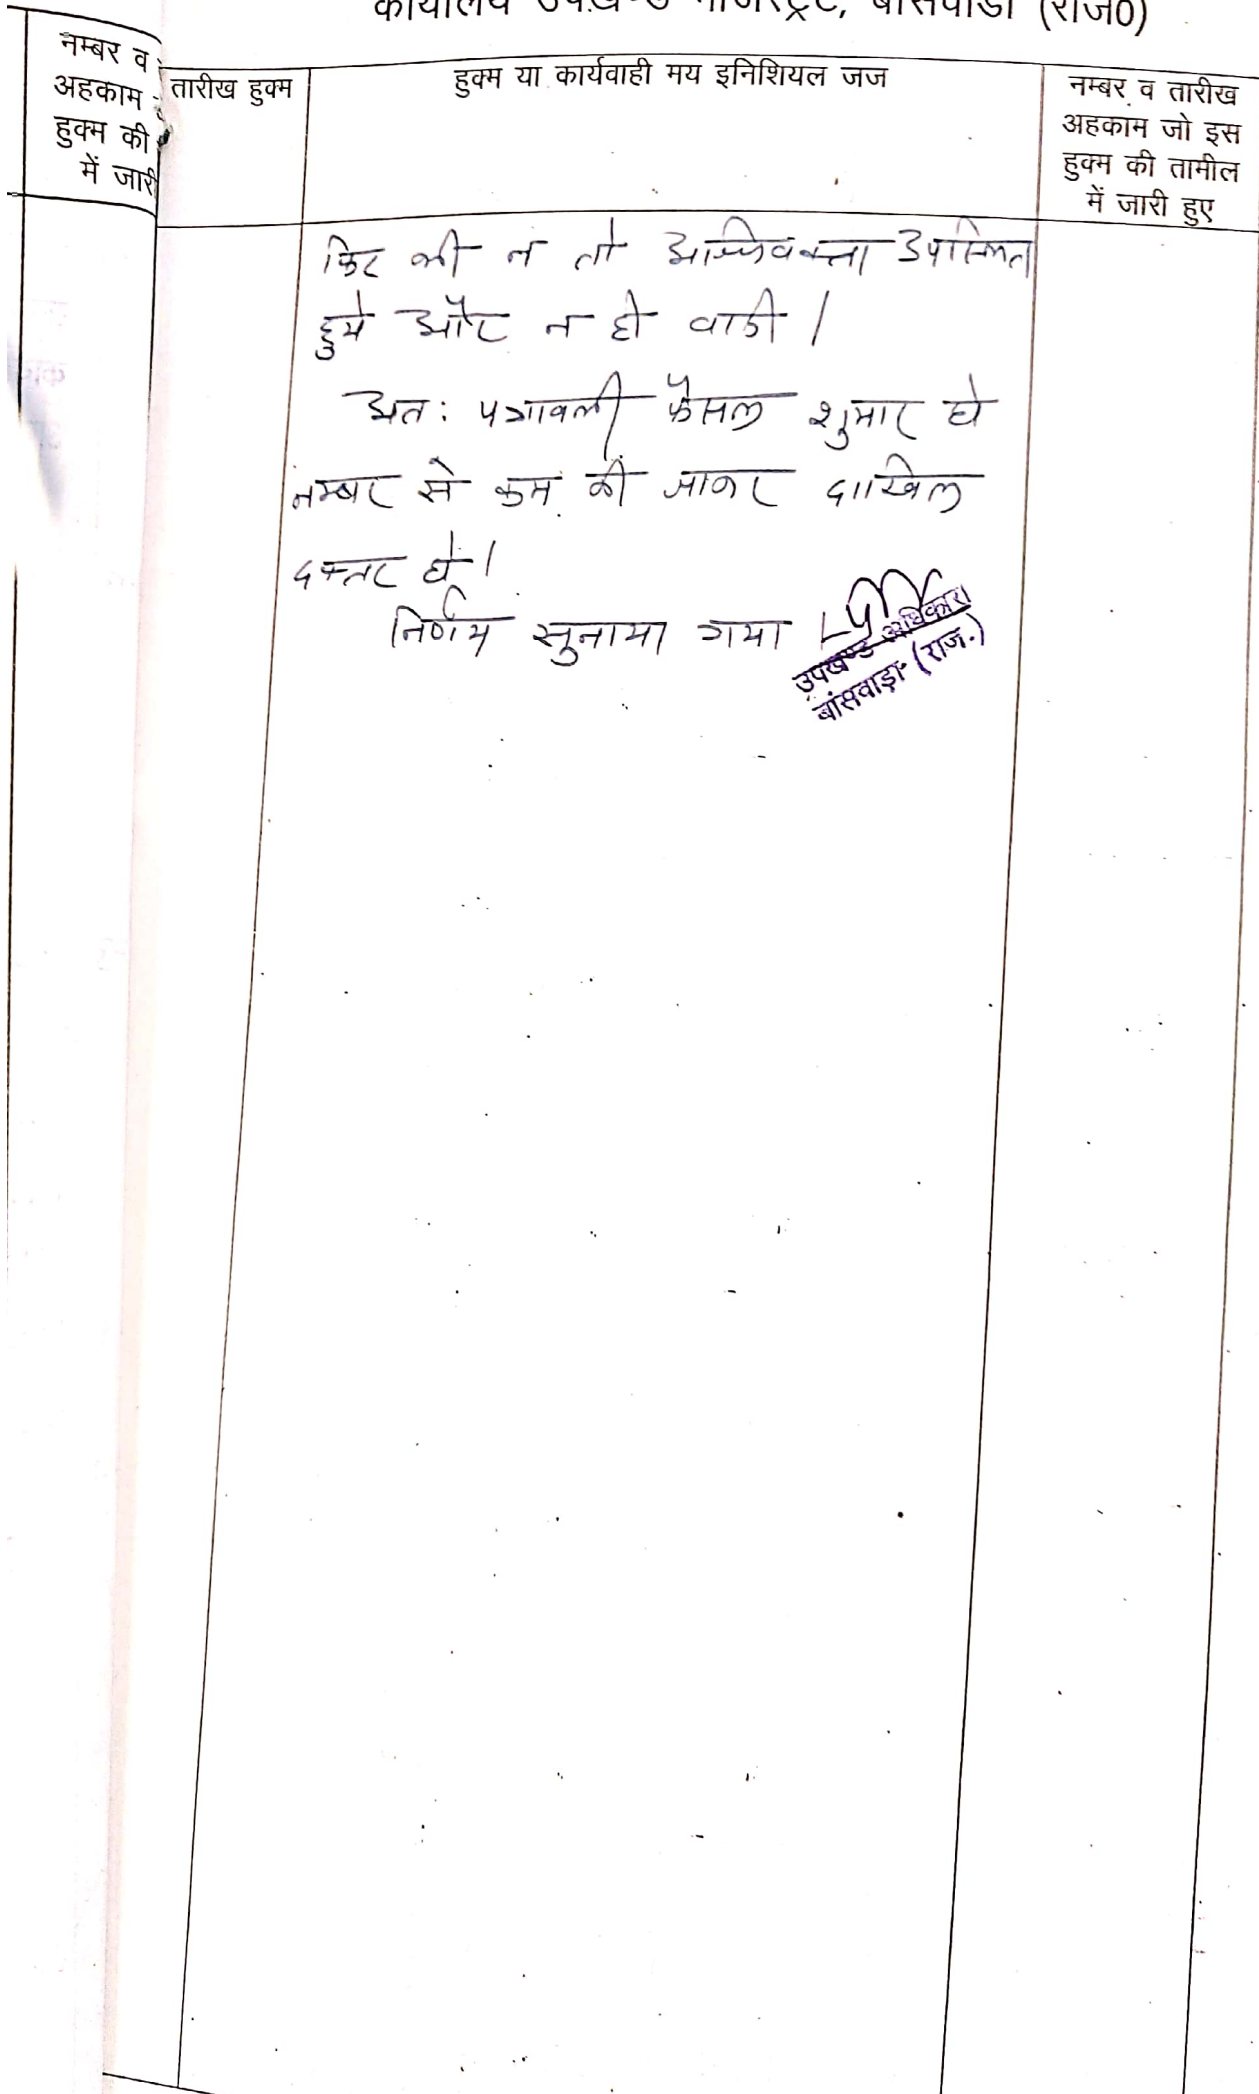 कार्यालय उपखण्ड मजिस्ट्रेट, बांसवाडा (राज0)
नम्बर व
अहकाम
हुक्म की
में जारी
तारीख हुक्म
हुक्म या कार्यवाही मय इनिशियल जज
नम्बर व तारीख
अहकाम जो इस
हुक्म की तामील
में जारी हुए
फिर भी न तो अभिवक्ता उपस्थित
हुये और न ही वादी।
अत: पत्रावली फैसल शुमार हो
नम्बर से कम की जाकर दाखिल
दफ्तर हो।
निर्णय सुनाया गया
उपखण्ड अधिकारी
बांसवाड़ा (राज.)